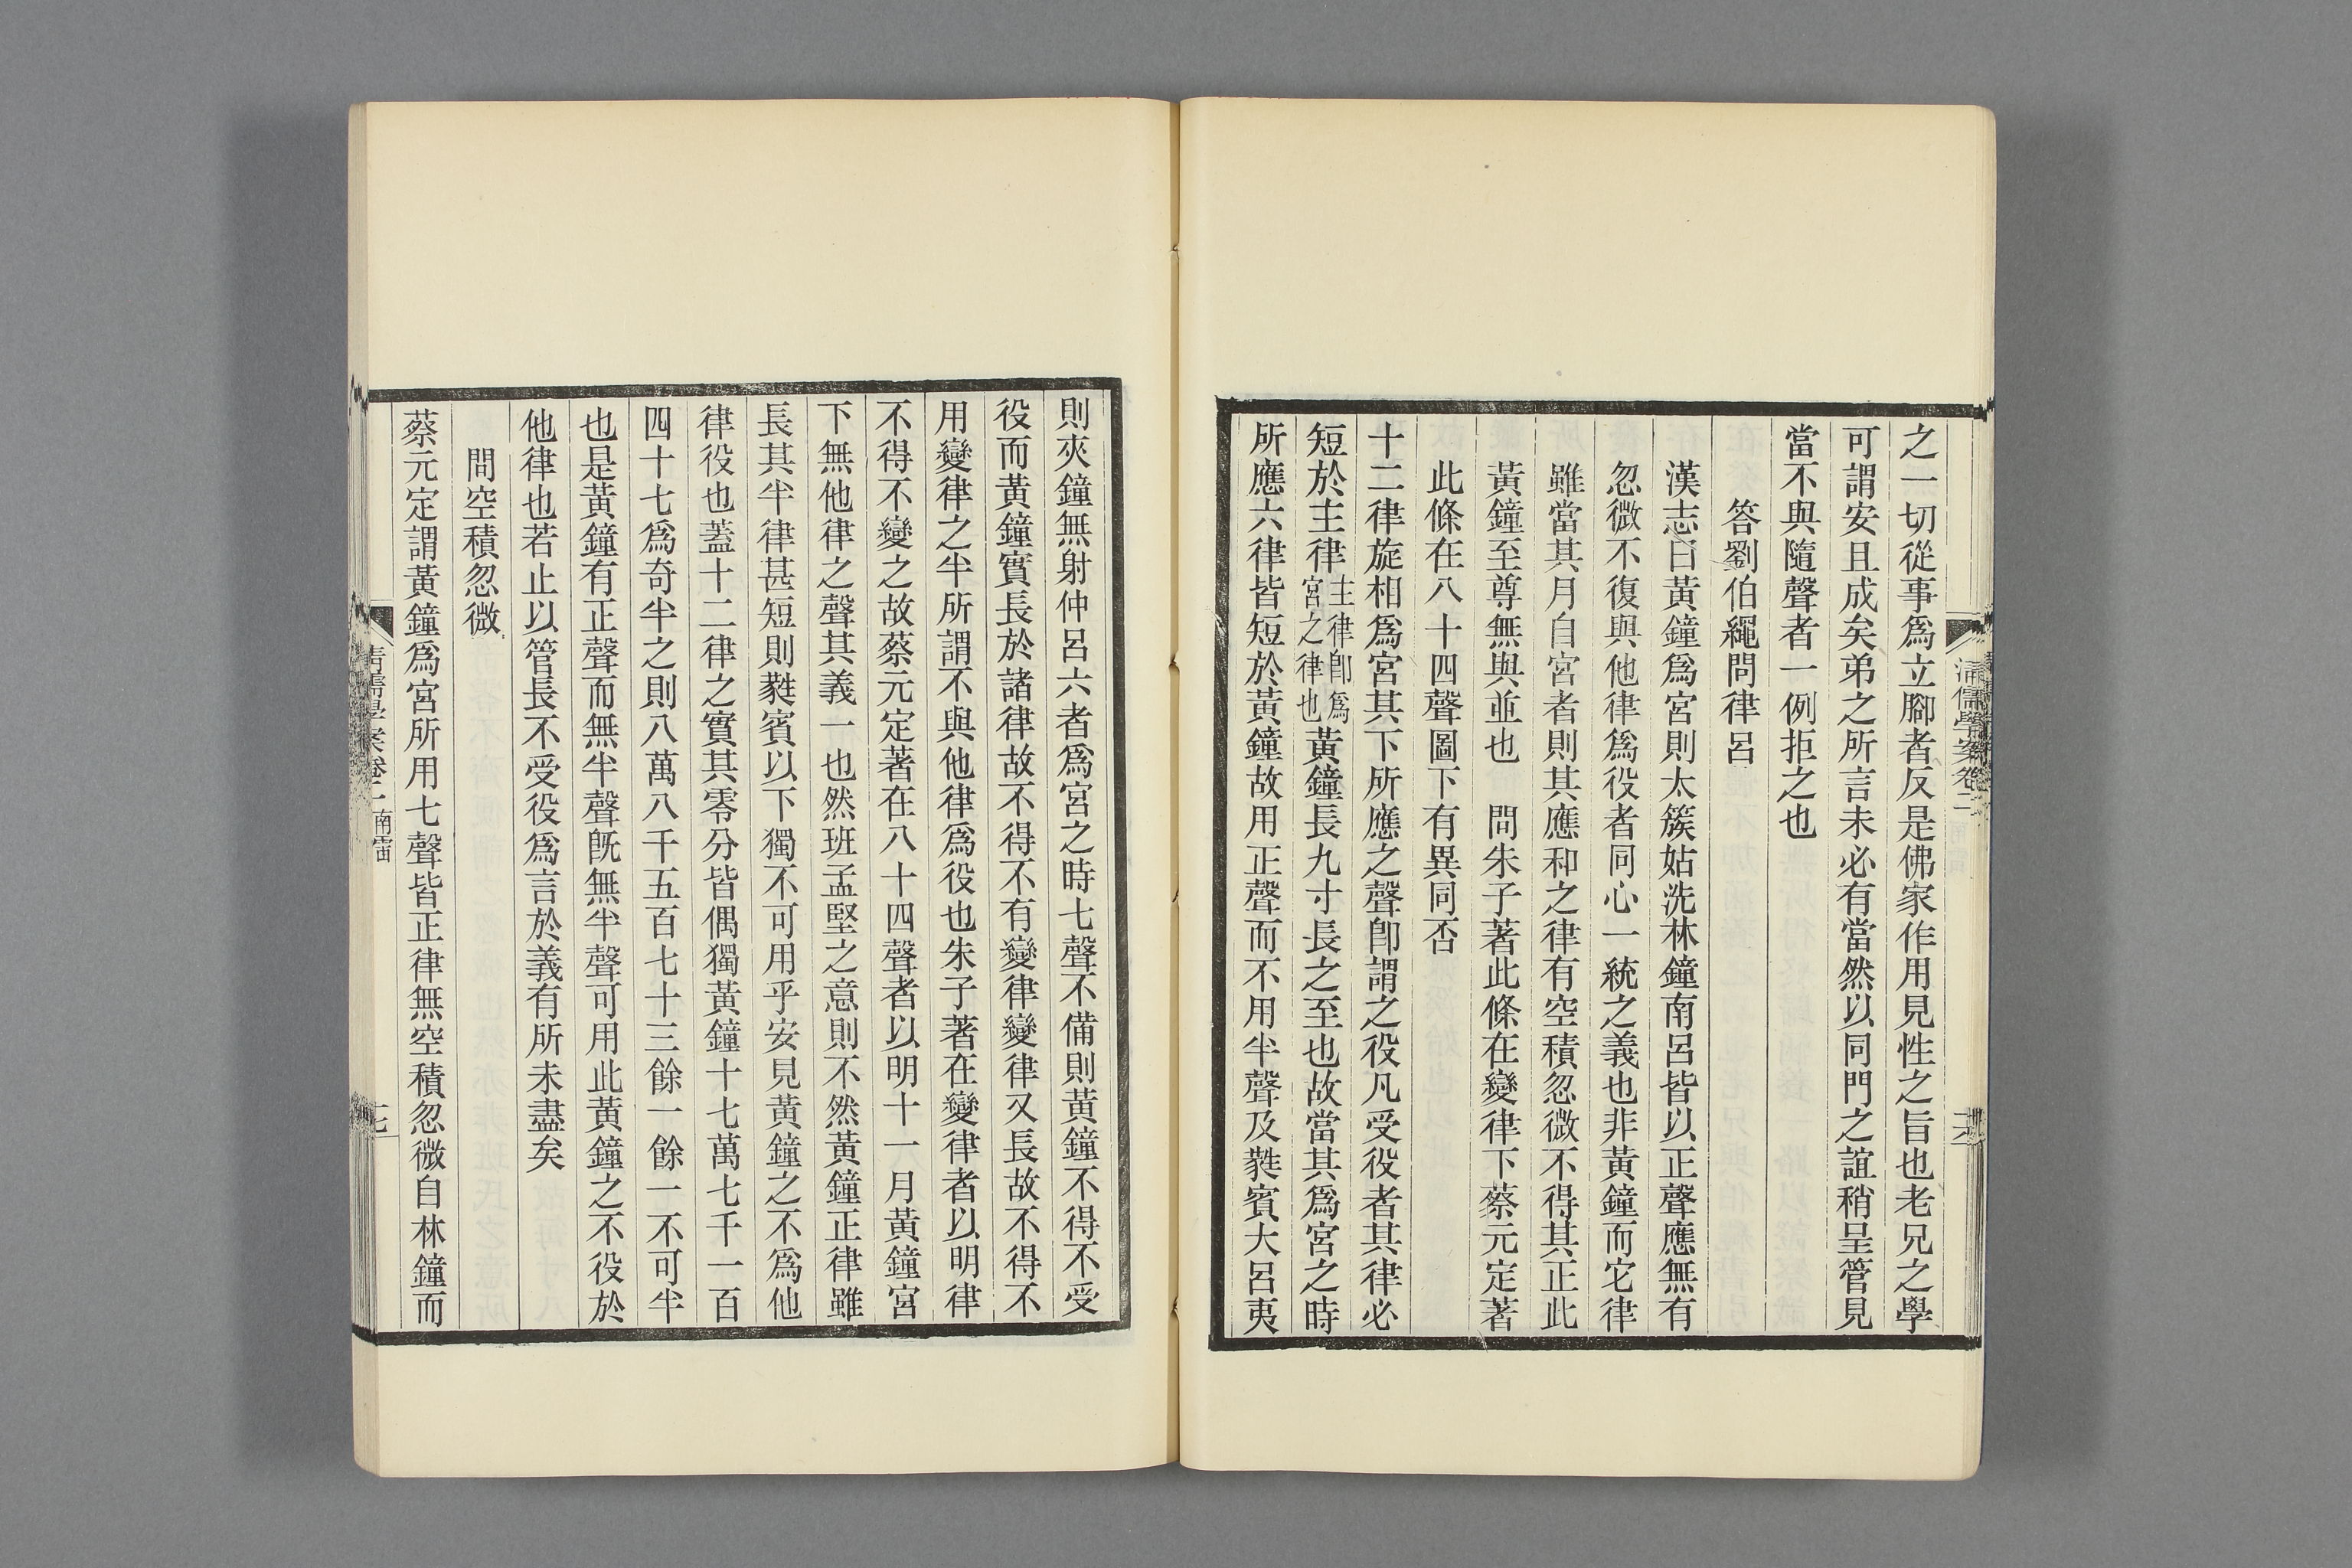 清儒學案卷二
之一切從事爲立腳者反是佛家作用見性之旨也老兄之學
可謂安且成矣弟之所言未必有當然以同門之誼稍呈管見
當不與隨聲者一例拒之也
答劉伯繩問律呂
漢志曰黃鐘爲宮則太簇姑洗林鐘南呂皆以正聲應無有
忽微不復與他律爲役者同心一統之義也非黃鐘而它律
雖當其月自宮者則其應和之律有空積忽微不得其正此
黃鐘至尊無與並也　問朱子著此條在變律下蔡元定著
此條在八十四聲圖下有異同否
十二律旋相爲宮其下所應之聲卽謂之役凡受役者其律必
短於主律主律卽爲宮之律也黃鐘長九寸長之至也故當其爲宮之時
所應六律皆短於黃鐘故用正聲而不用半聲及蕤賓大呂夷
則夾鐘無射仲呂六者爲宮之時七聲不備則黃鐘不得不受
役而黃鐘實長於諸律故不得不有變律變律又長故不得不
用變律之半所謂不與他律爲役也朱子著在變律者以明律
不得不變之故蔡元定著在八十四聲者以明十一月黃鐘宮
下無他律之聲其義一也然班孟堅之意則不然黃鐘正律雖
長其半律甚短則蕤賓以下獨不可用乎安見黃鐘之不爲他
律役也蓋十二律之實其零分皆偶獨黃鐘十七萬七千一百
四十七爲奇半之則八萬八千五百七十三餘一餘一不可半
也是黃鐘有正聲而無半聲旣無半聲可用此黃鐘之不役於
他律也若止以管長不受役爲言於義有所未盡矣
問空積忽微
蔡元定謂黃鐘爲宮所用七聲皆正律無空積忽微自林鐘而
清儒學案卷二　南雷